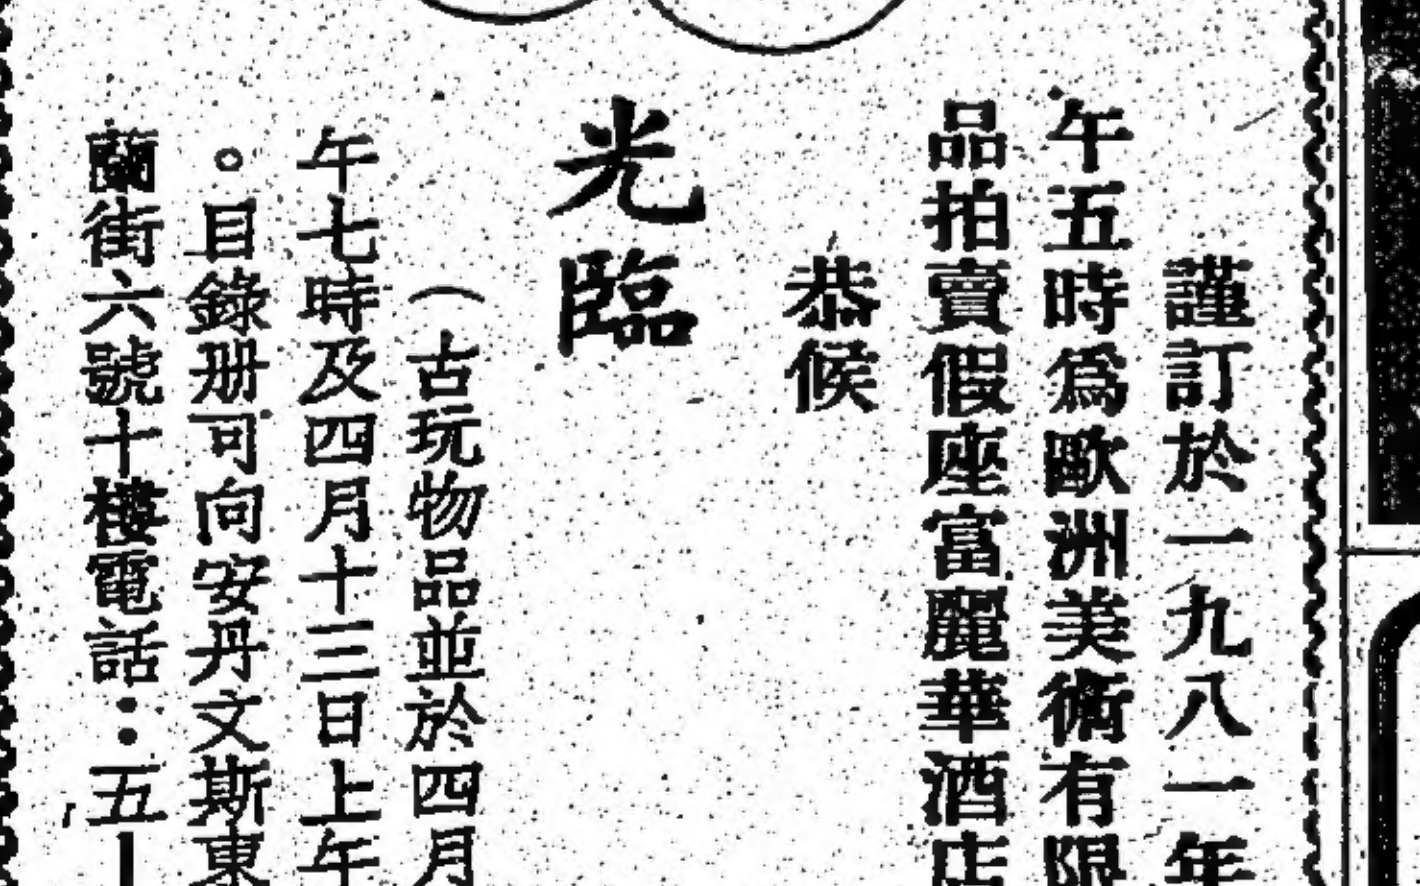 謹訂於一九八一年
午五時爲歐洲美術有限
品拍賣假座富麗華酒店
恭候
光臨
（古玩物品並於四月
午七時及四月十三日上午
。目錄册可向安丹文斯東
蘭街六號十樓電話：五